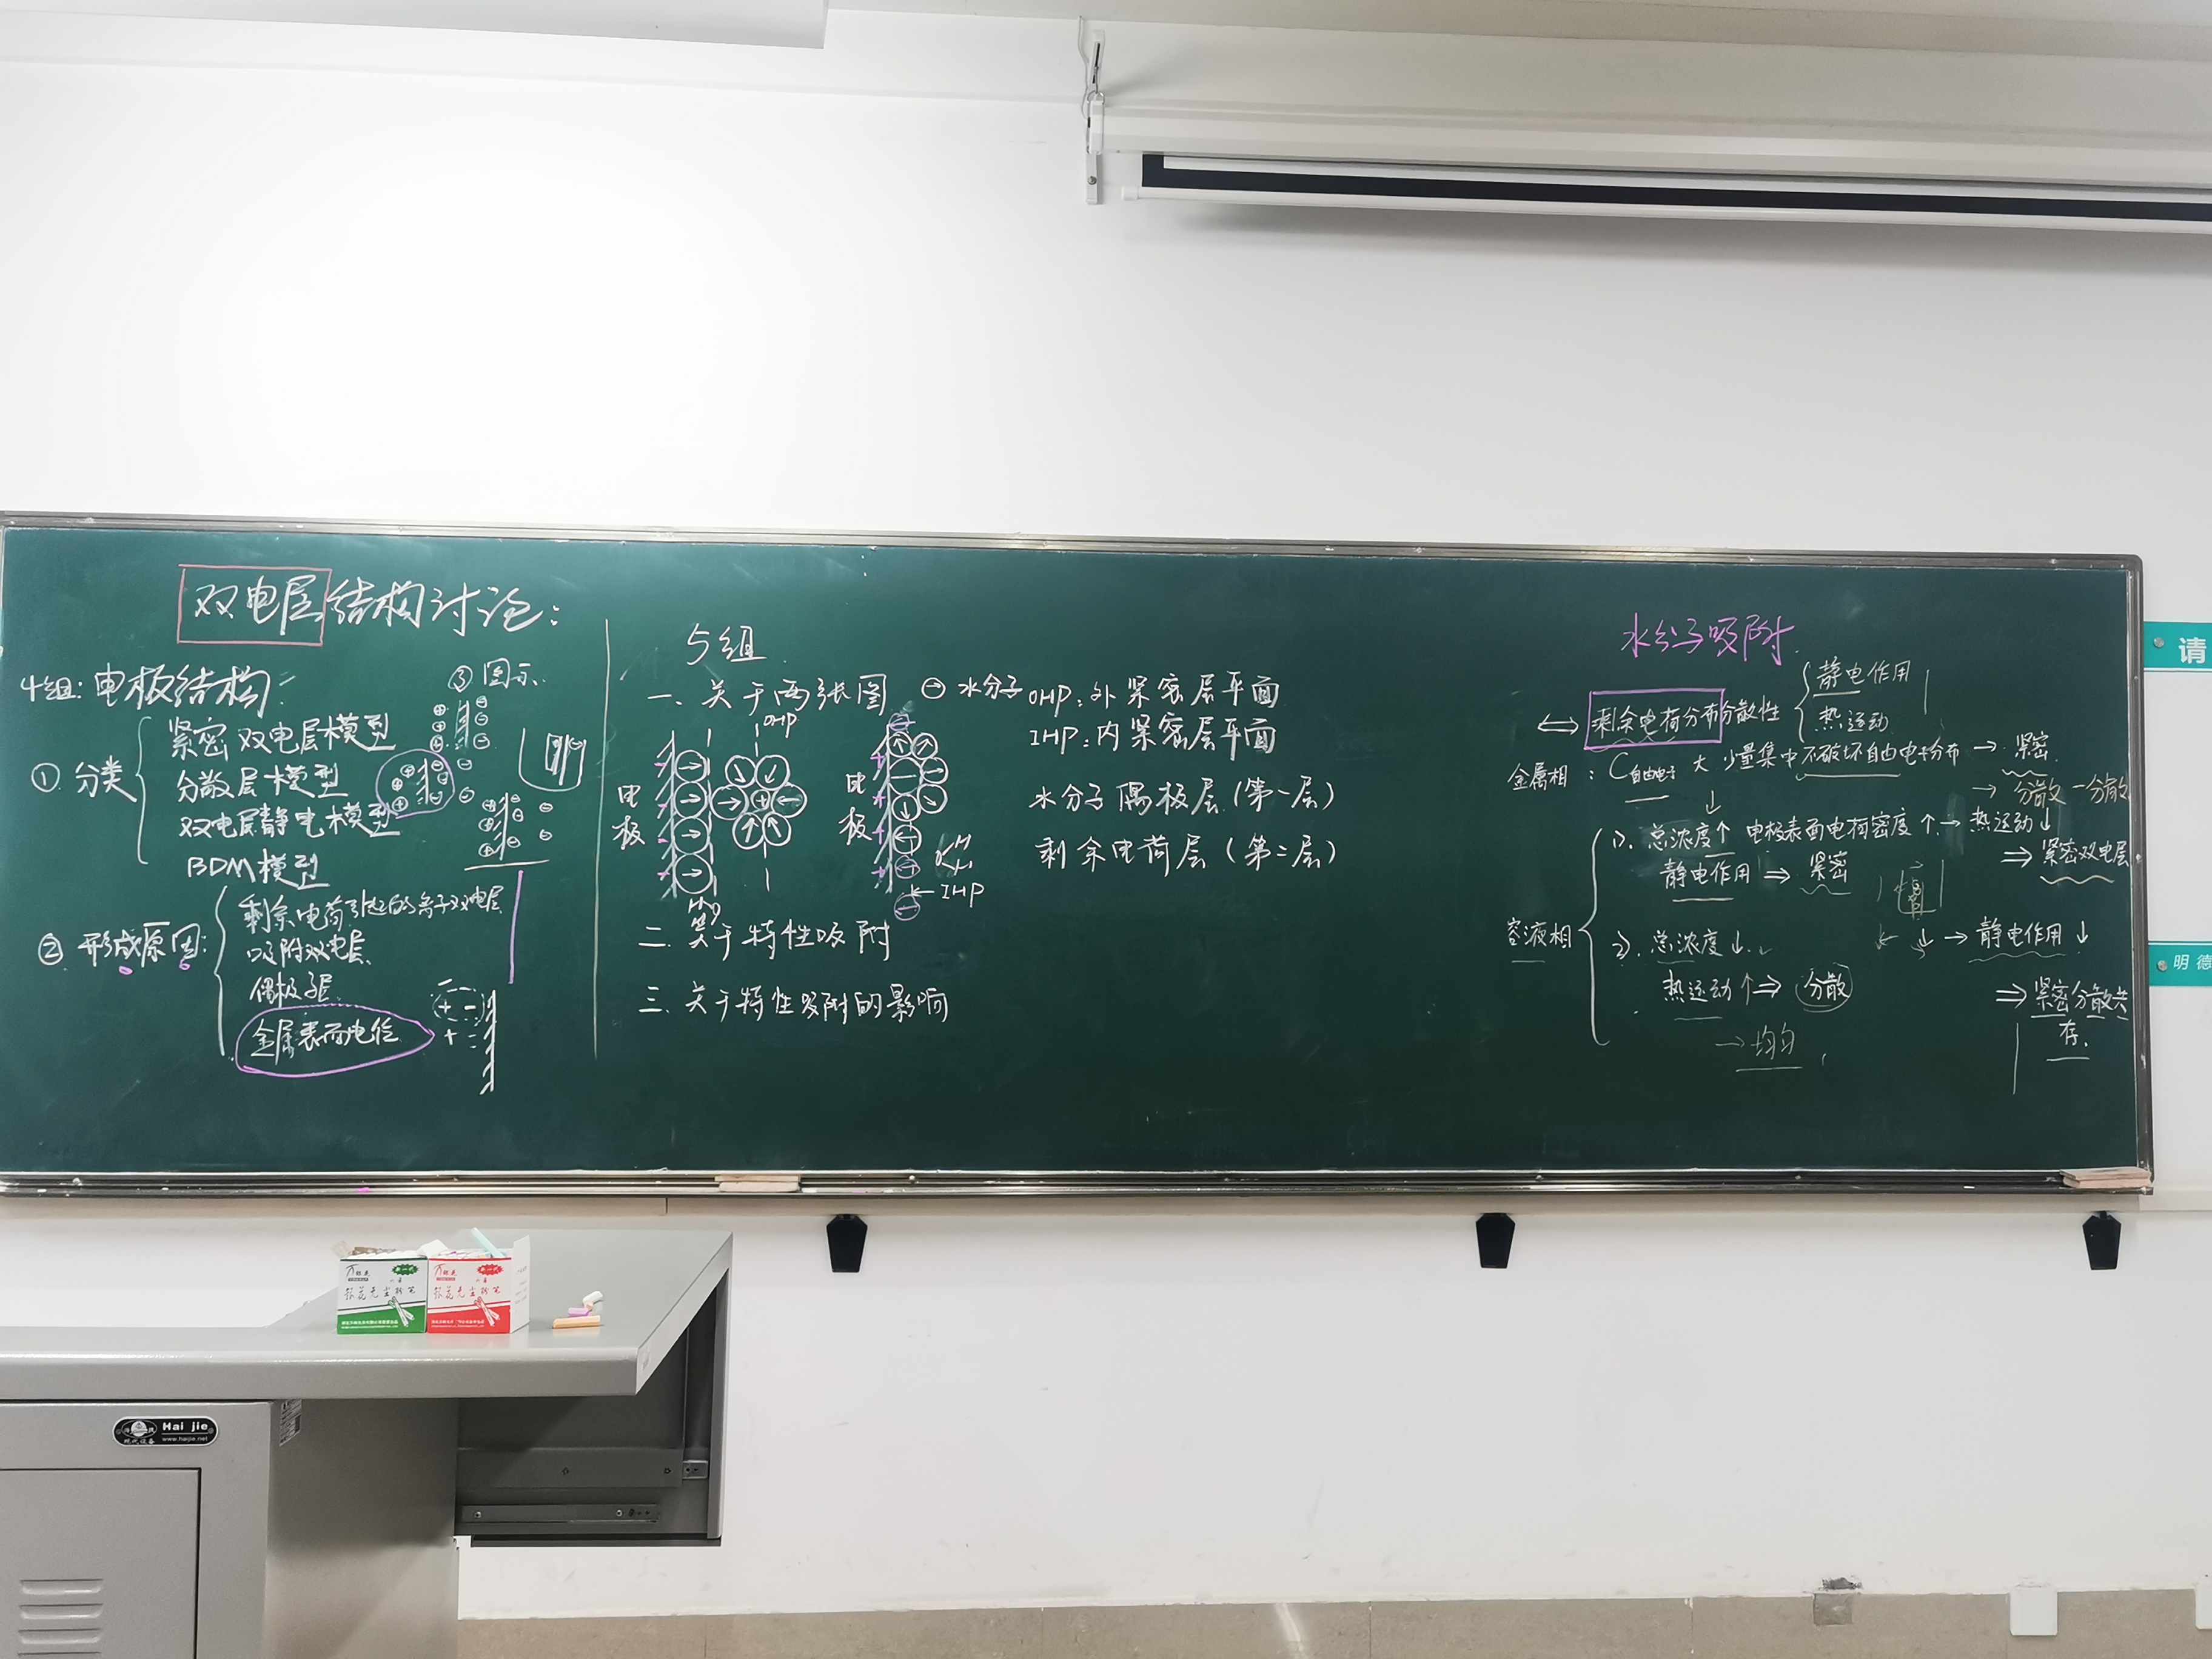 双电层结构讨论：
4组：电极结构：
① 分类
紧密双电层模型
分散层模型
双电层静电模型
BDM模型
② 形成原因：
剩余电荷引起的离子双电层
吸附双电层
偶极子层
金属表面电位
③ 图示
5组
一、关于两张图
水分子
OHP：外紧密层平面
IHP：内紧密层平面
水分子偶极层（第一层）
剩余电荷层（第二层）
OHP
电
极
电
极
IHP
二、关于特性吸附
三、关于特性吸附的影响
水分子吸附
⇔ 剩余电荷分布分散性
静电作用
热运动
金属相：C自由电子 大 少量集中不破坏自由电子分布 → 紧密
→ 分散 — 分散
溶液相
1）. 总浓度↑ 电极表面电荷密度↑ → 热运动↓
静电作用 ⇒ 紧密
⇒ 紧密双电层
2）. 总浓度↓
→ 静电作用↓
热运动↑ ⇒ 分散
→ 均匀
⇒ 紧密分散共
存.
请
明德
Hai jie
www.haijie.net